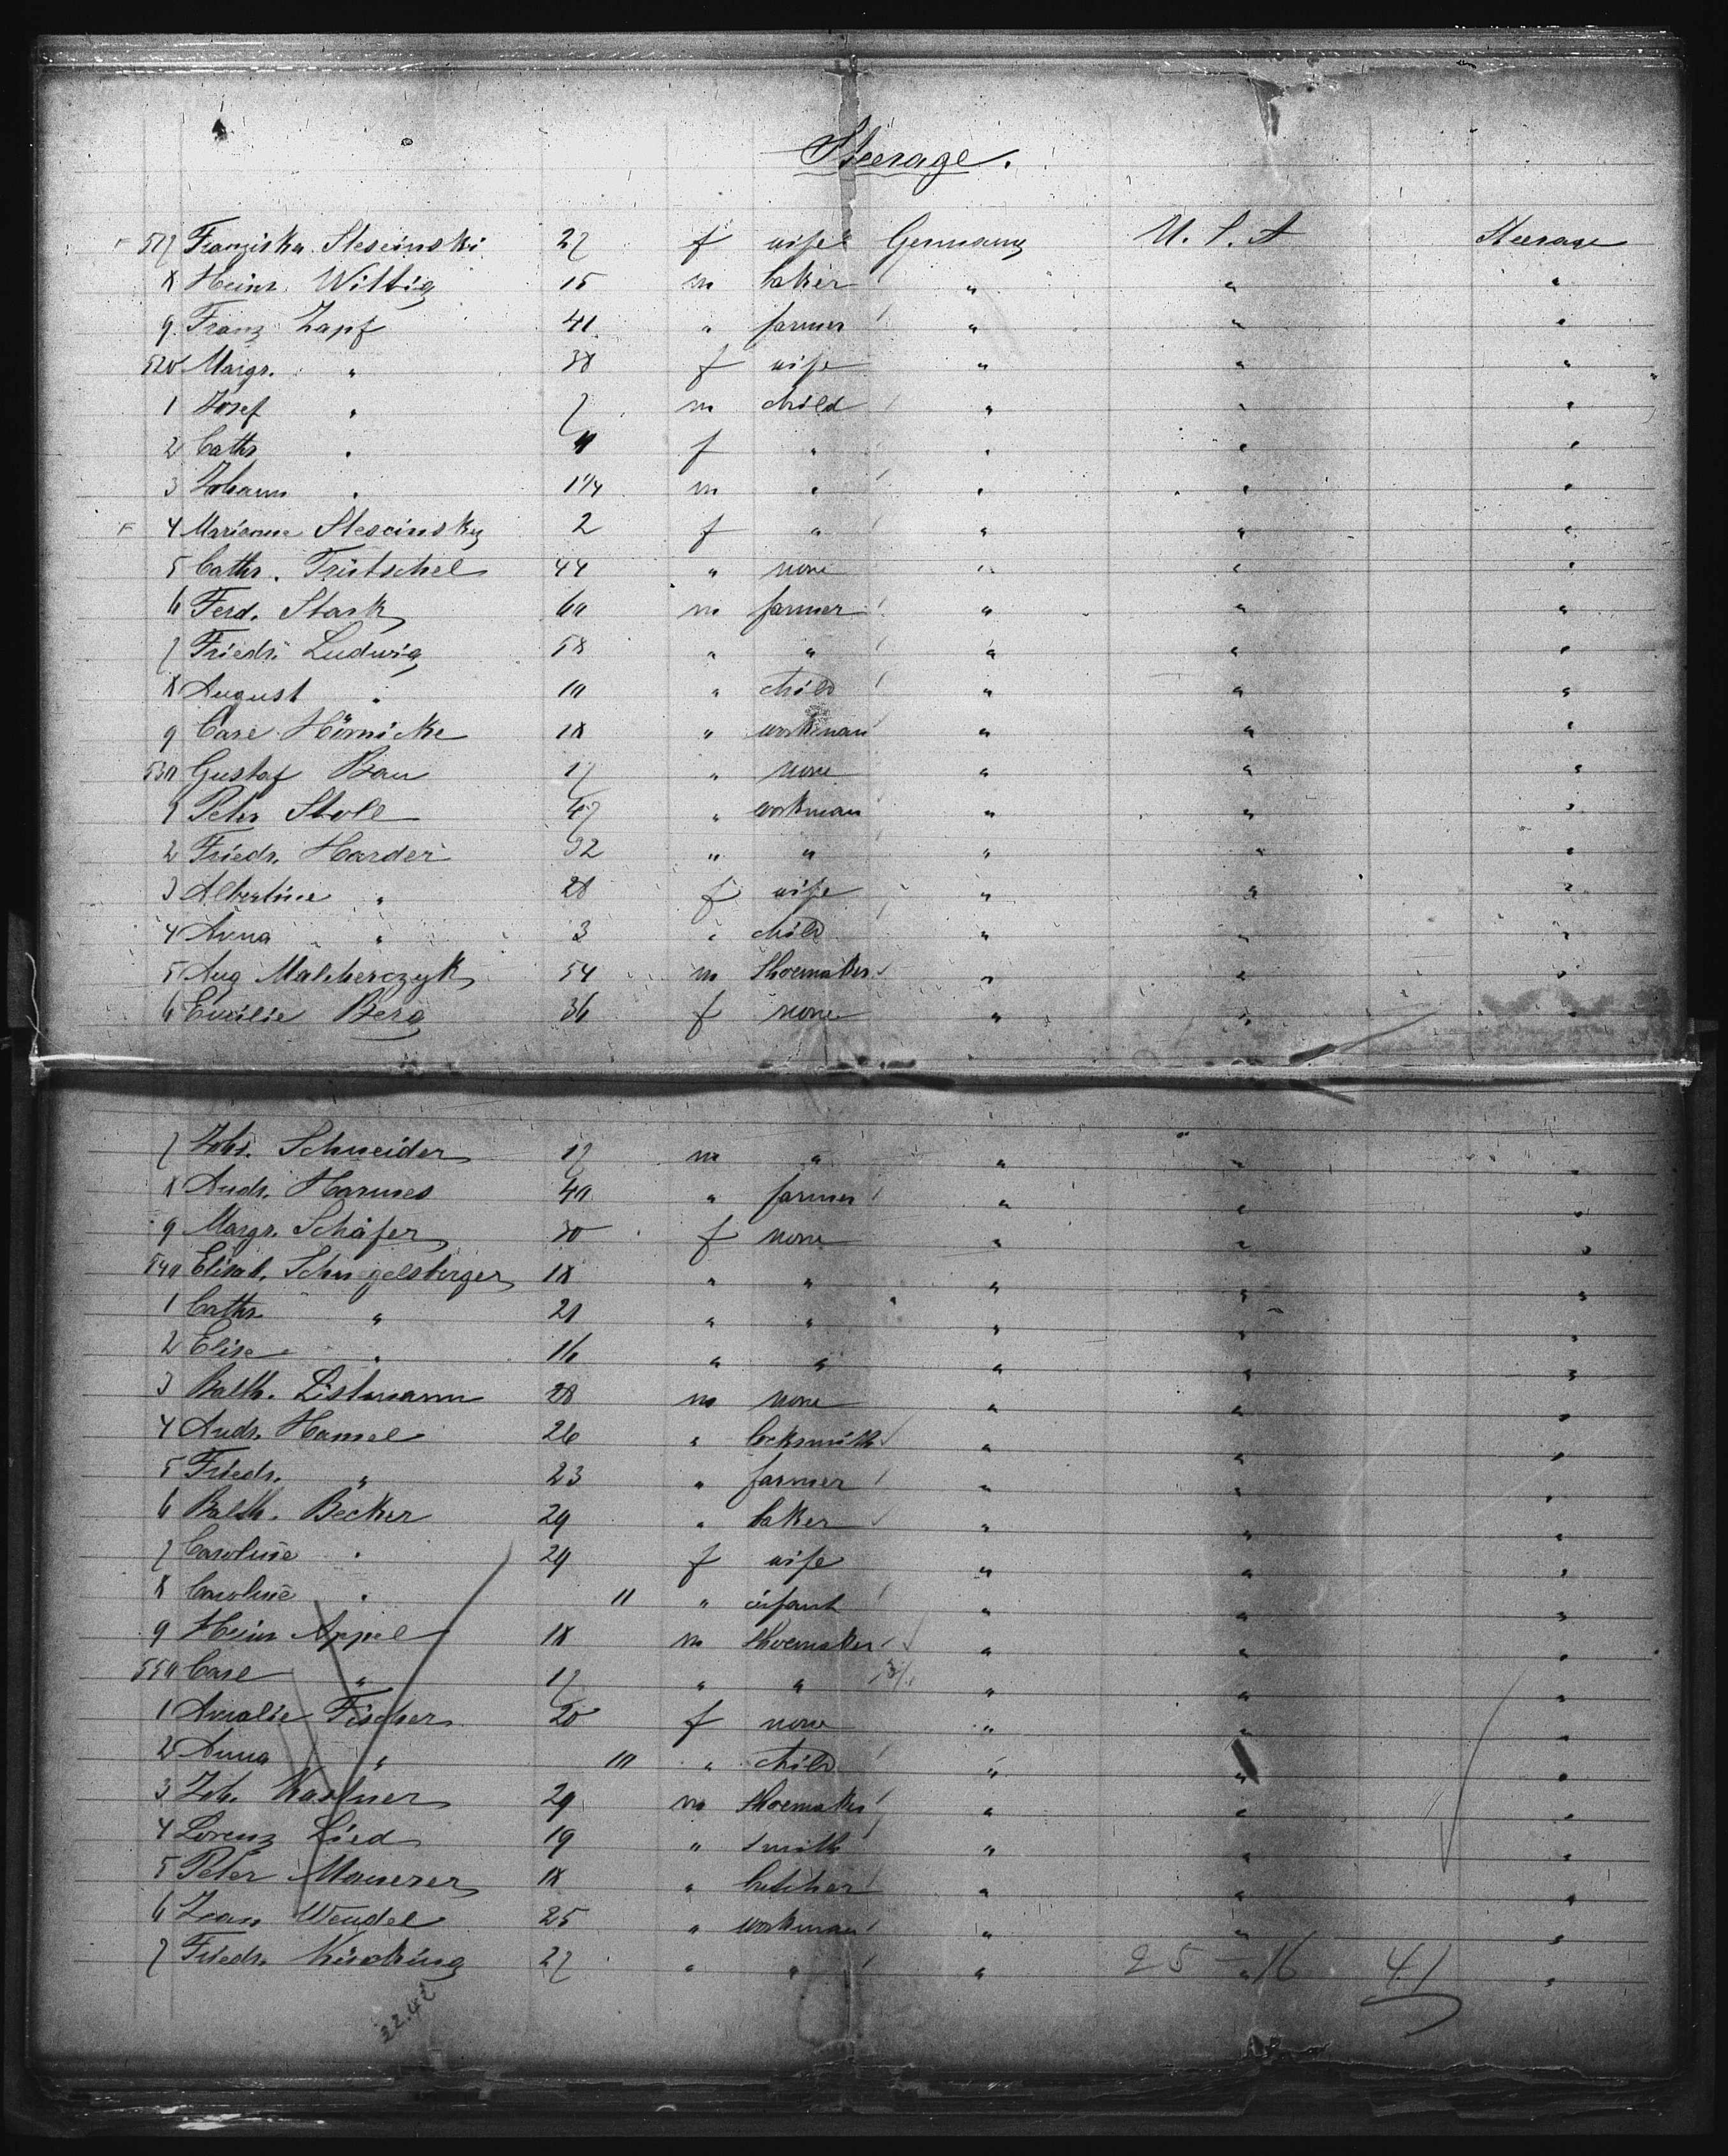 Steerage.
517 Franziska Slescinski 27 f wife Germany U. S. A Steerage
8 Heinr. Wittig 15 m baker " " "
9. Franz Zapf 41 " farmer " " "
520 Margr. " 38 f wife " " "
1 Josef " 7 m child " " "
2 Cathr " f " " " "
3 Johann " 1 1/4 m " " " "
4 Marianne Slescinsky 2 f " " " "
5 Cathr. Trütschel 44 " none " " "
6 Ferd. Stark 60 m farmer " " "
7 Friedr. Ludwig 58 " " " " "
8 August " 10 " child " " "
9 Carl Hörnicke 18 " workman " " "
530 Gustaf Bau 17 " none " " "
1 Peter Stoll 47 " workman " " "
2 Friedr. Harder 32 " " " " "
3 Albertine " 28 f wife " " "
4 Anna " 3 " child " " "
5 Aug Malcherczyk 54 m Shoemaker " " "
6 Emilie Berg 36 f none " " "
7 Joh. Schneider 17 m " " " "
8 Andr. Harmes 40 " farmer " " "
9 Margr. Schäfer 30 f none " " "
540 Elisab. Schnegelsberger 18 " " " " "
1 Cathr " 21 " " " " "
2 Elise " 16 " " " " "
3 Balth. Listmann 28 m none " " "
4 Andr. Hamel 26 " locksmith " " "
5 Friedr. " 23 " farmer " " "
6 Balth. Becker 29 " baker " " "
7 Caroline " 29 f wife " " "
8 Caroline " 11 " infant " " "
9 Heinr Appel 18 m Shoemaker " " "
550 Carl " 17 " " " " "
1 Amalie Fischer 20 f none " " "
2 Anna " 10 " child " " "
3 Joh. Kastner 29 m Shoemaker " " "
4 Lorenz Lied 19 " smith " " "
5 Peter Maurer 18 " butcher " " "
6 Jean Wendel 25 " workman " " "
7 Friedr. 27 " " " " "
25 - 16 41
22.42